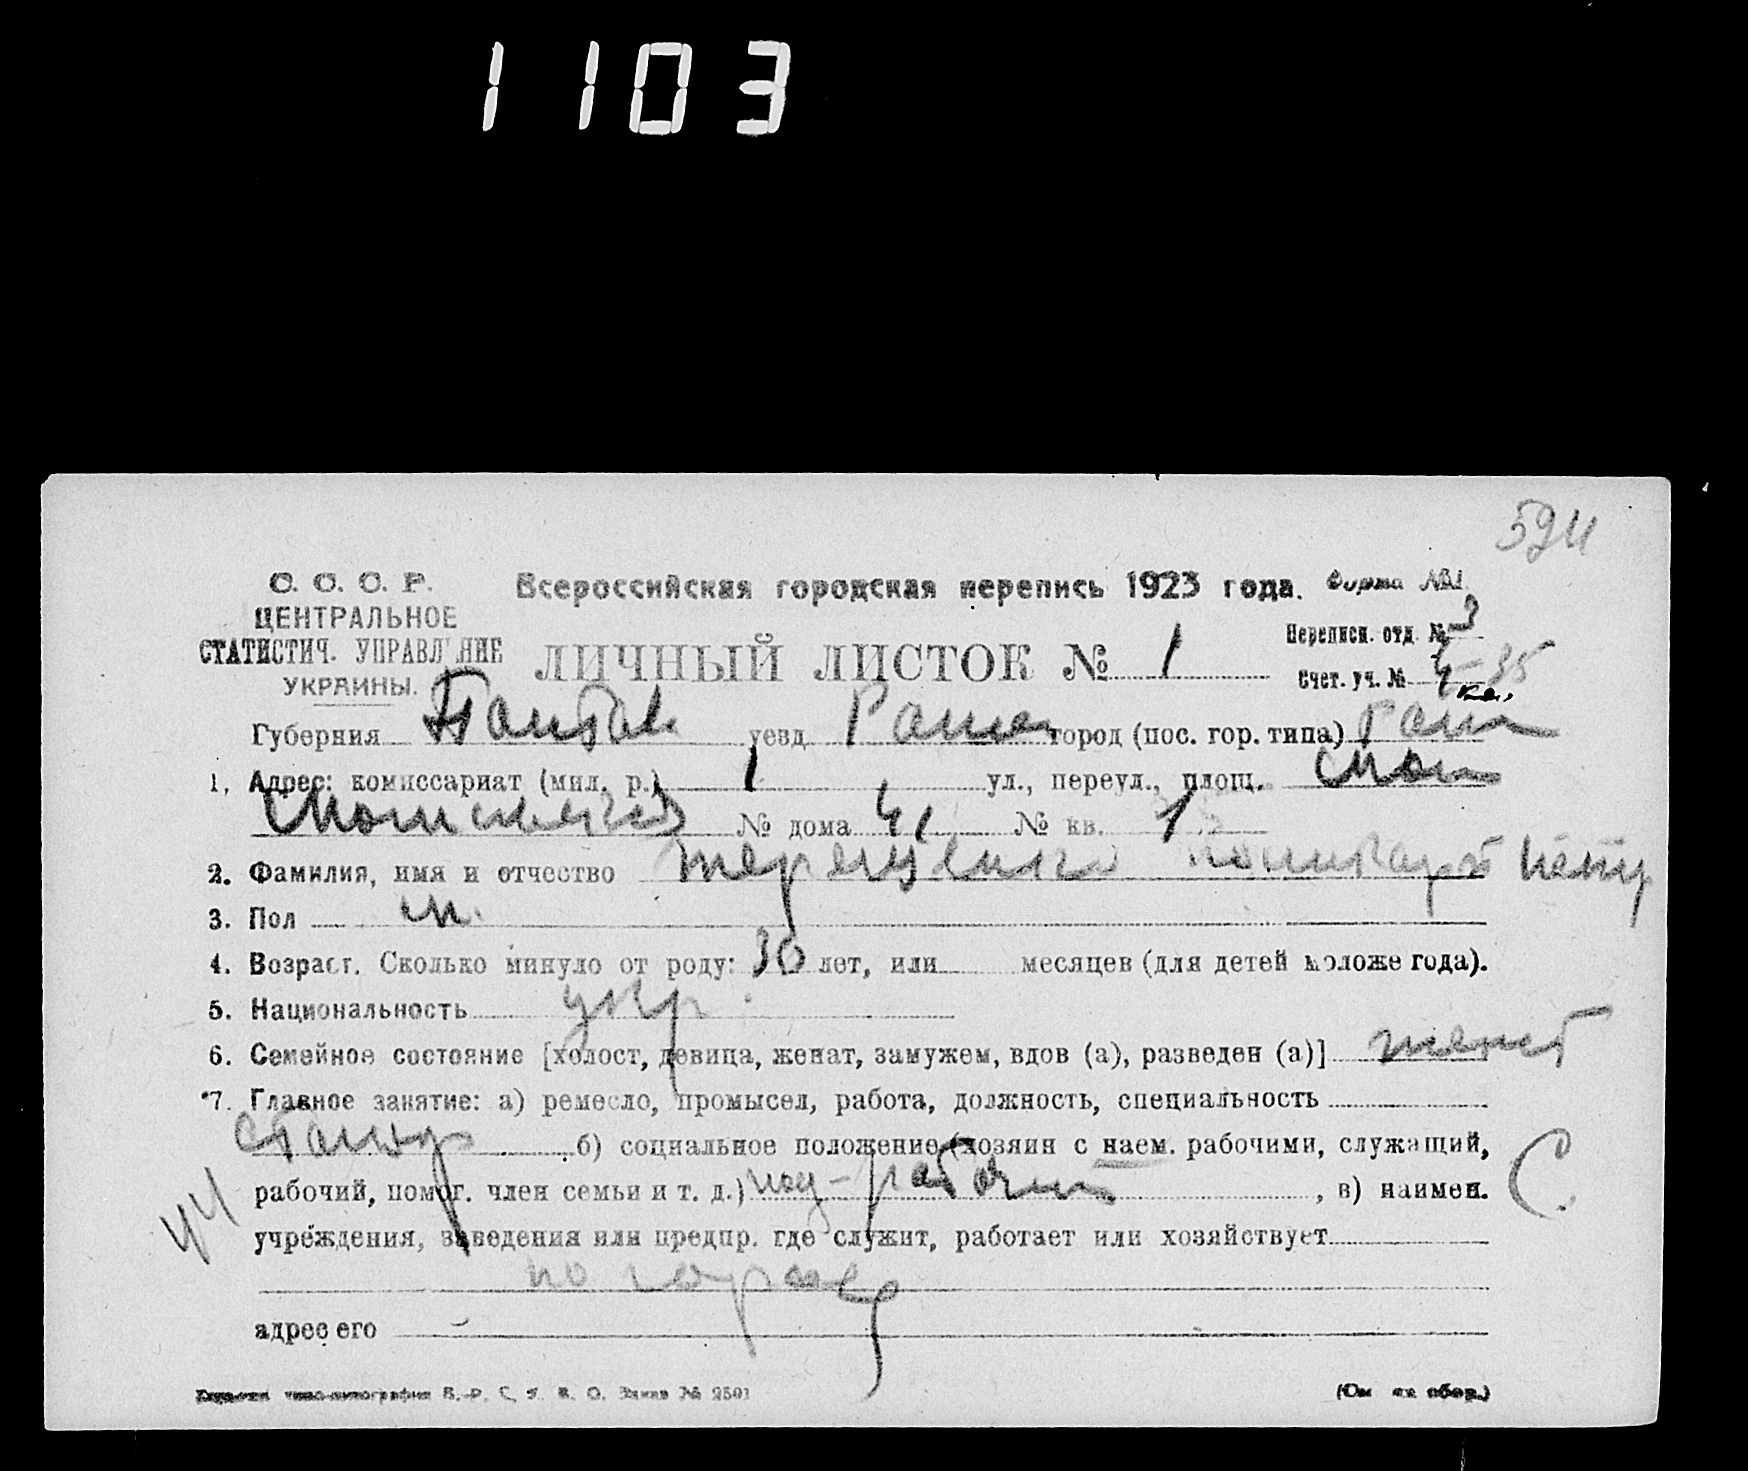 1103
594
С. С. С. Р.
ЦЕНТРАЛЬНОЕ
СТАТИСТИЧ. УПРАВЛЕНИЕ
УКРАИНЫ.
Всероссийская городская перепись 1923 года. Форма №1.
ЛИЧНЫЙ ЛИСТОК № 1
Переписн. отд. № 3
Счет. уч. № 4-35
Губерния Полтав уезд Ромен город (пос. гор. типа) Ром
1. Адрес: комиссариат (мил. р.) 1 ул., переул., площ.
№ дома 41 № кв. 1
2. Фамилия, имя и отчество Терещенко Петр
3. Пол м.
4. Возраст. Сколько минуло от роду: 30 лет, или месяцев (для детей моложе года).
5. Национальность укр.
6. Семейное состояние [холост, девица, женат, замужем, вдов (а), разведен (а)] женат
*7. Главное занятие: а) ремесло, промысел, работа, должность, специальность
столяр б) социальное положение (хозяин с наем. рабочими, служащий,
рабочий, помог. член семьи и т. д.) , в) наимен.
учреждения, заведения или предпр. где служит, работает или хозяйствует
по
адрес его
типо-литография Заказ № 2501
(См. на обор.)